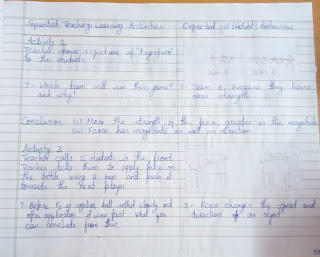 Sequential Teaching Learning Activities
Expected Students Behaviour
Activity 2
Teacher shows a picture of "tug of war"
to the students
T- Which team will win this game
and why?
S- Team B. Because they have
more strength.
Conclusion: (i) More the strength of the force, greater is the magnitude
(ii) Force has magnitude as well as direction.
Activity 3
Teacher calls 2 students in the front.
Teacher tells them to apply force on
the bottle using a pen and push it
towards the next player
T- Before is applied, ball rolled slowly and
after application it was fast. What you
can conclude from this
S- Force changes the speed and
direction of an object